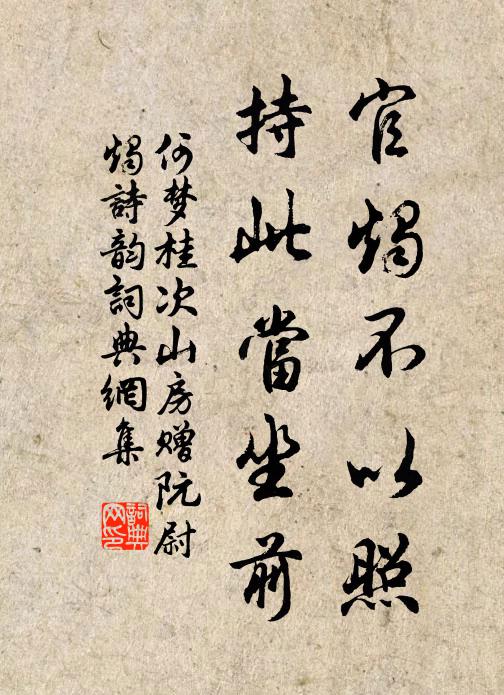 官燭不以照
持此當坐前
何梦桂次山房赠阮尉
燭詩韵詞典網集
詞典
网印